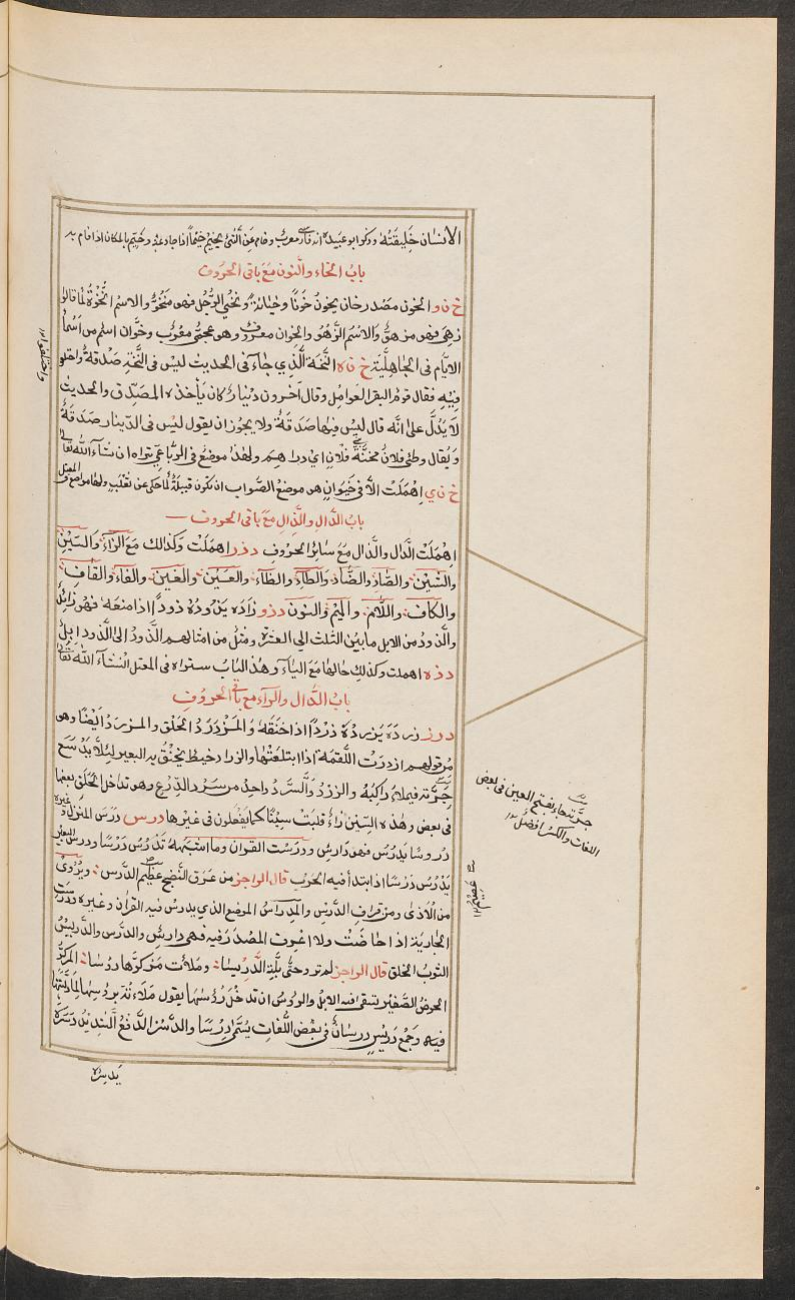 الانسان خَلِيقَتُهُ وذكر ابو عبيدة انه فارسي معرب وخام عَنِ الشئ يخيم خَيْماً اذا حاد عنه وخَيّم بالمكان اذا قام به
بابُ الخاء والنون مَعَ باقى الحروف
خ ن و الخون مصْدر خان يخونُ خَونًا وخيانةً ونُخِي الرّجُل فهو مَنْخُوٌّ والاسم النَّخْوَةُ كما قالوا
زهى فهو مزهوٌّ والاسْم الزَّهْو والخوان معروف وهو عجمىٌّ معرَّب وخوَّان اسم من اَسْماء
الايّام فى الجاهليَّة خ ن ه النُّخَّةُ الَّذِي جاء فى الحديث ليسَ فى النُّخَّةِ صَدَقةٌ واختلفوا
فِيْهِ فقال قوم البقر العَوامِل وقال آخرون دينارٌ كان يَأخذه المصَدِّق والحديث
لَا يَدُلَّ على انّه قال ليس فيها صَدَقةٌ ولا يجوز ان يقول ليس فى الدّينار صَدَقةٌ
وَيُقال وطئ فلانٌ مخنّةَ فلانٍ اى دراهم ولهذا موضعٌ فى الرّباعى تراه ان شآء الله تعالى
خ ن ي اهملَتْ الّا فى خَيَوَانٍ هو موضع الصَّواب ان تكون قبيلةً كما حكى عن ثعْلب ولها مواضع فى المعتل
بابُ الدَّال والذال معَ باقى الحروف
اهْمَلَتْ الدَّال والذَّال مَعَ سائر الحروف د ذ ر اهمَلَت وكذالك مَعَ الزَّاءِ وَالسّيْنِ
والشّيْنِ والصَّادِ والضَّادِ والطَّاءِ والظاءِ والعَيْنِ والغَيْنِ والفاءِ والقافِ
والكافِ واللّامِ والمِيْمِ والنونِ د ذ و ذَادَه يَذُودُهُ ذوداً اذا منعَهُ فهو ذائدٌ
والذود من الابل ما بين الثلث الى العشرة ومثل من امثالهم الذَّودُ الى الذَّود ابِلٌ
د ذ ه اهملت وكذلِكَ حالها مَعَ اليَآءِ وهٰذا البَاب ستراه فى المعتل انشآء الله تعالى
بابُ الدَّال والرآء مع باقى الحروُفِ
د ر ز زرَدَهُ يَزردُهُ زَرْداً اذا خَنقَهُ والمَزْدَرَدُ الحَلق والمزرَدُ اَيْضًا وهو
من قولهم ازدرَدْت اللُّقمة اذا ابتلعْتَها والزراد خيط يخنقُ به البعير لئلّا يَدْسَع
بجرَّته فيملاءُ راكبَهُ والزردُ والسَّردُ واحدٌ من سَرْدِ الدِّرْع وهو تداخل الحَلق بعضها
فى بعض وهٰذه السِّين زاءٌ قلبَتْ سِيْنًا كما يفعلون فى غيرها د ر س دَرَسَ المنزل وغيره
دُرُوسًا يدْرُس فهو دَارِسٌ ودرَسْت القران وما اشبَهَهُ تَدْرُسُ دَرْسًا ودرس البعير
يَدْرُس دَرْسًا اذا ابتداَ فيه الجَرَب قال الراجز من عَرَقِ النَّضْحِ عَصِيْم الدَّرس ويُرْوى
من الاَذىٰ ومن قرافِ الدَّرْسِ والمِدْرَاسُ الموضع الذي يدرس فيه القرآن وغيره ودرَسَت
الجاريَة اذا حاضَتْ ولا اعرف المصدَرَ فيه فهى دارِسٌ والدَّرْس والدَّرِيسُ
الثوبُ الخلق قال الراجز لم تر وحتّى بلَّتِ الدَّرِيْسا وملاَت مَرْكوَّها دروسًا المركوّ
الحوضُ الصَّغير يسقى فيه الابل والروُس ان تدخل رؤسَها يقول ملَأتْه برؤسِها لما دلَّتْها
فيه وجَمْعُ دَرِيْسٍ دِرْسانٌ فى بعْض اللُّغاتِ يُسَمّٰى دِرسًا والدَّسْرُ الدَّفعُ الشديدُ دَسَرَهُ
يَدسرُه
واختلفوا ١٢
جرَّته جاء بفتح العين فى بعض
اللغات والكسر افضلُ ١٢
عَصِيْمُ ١٢